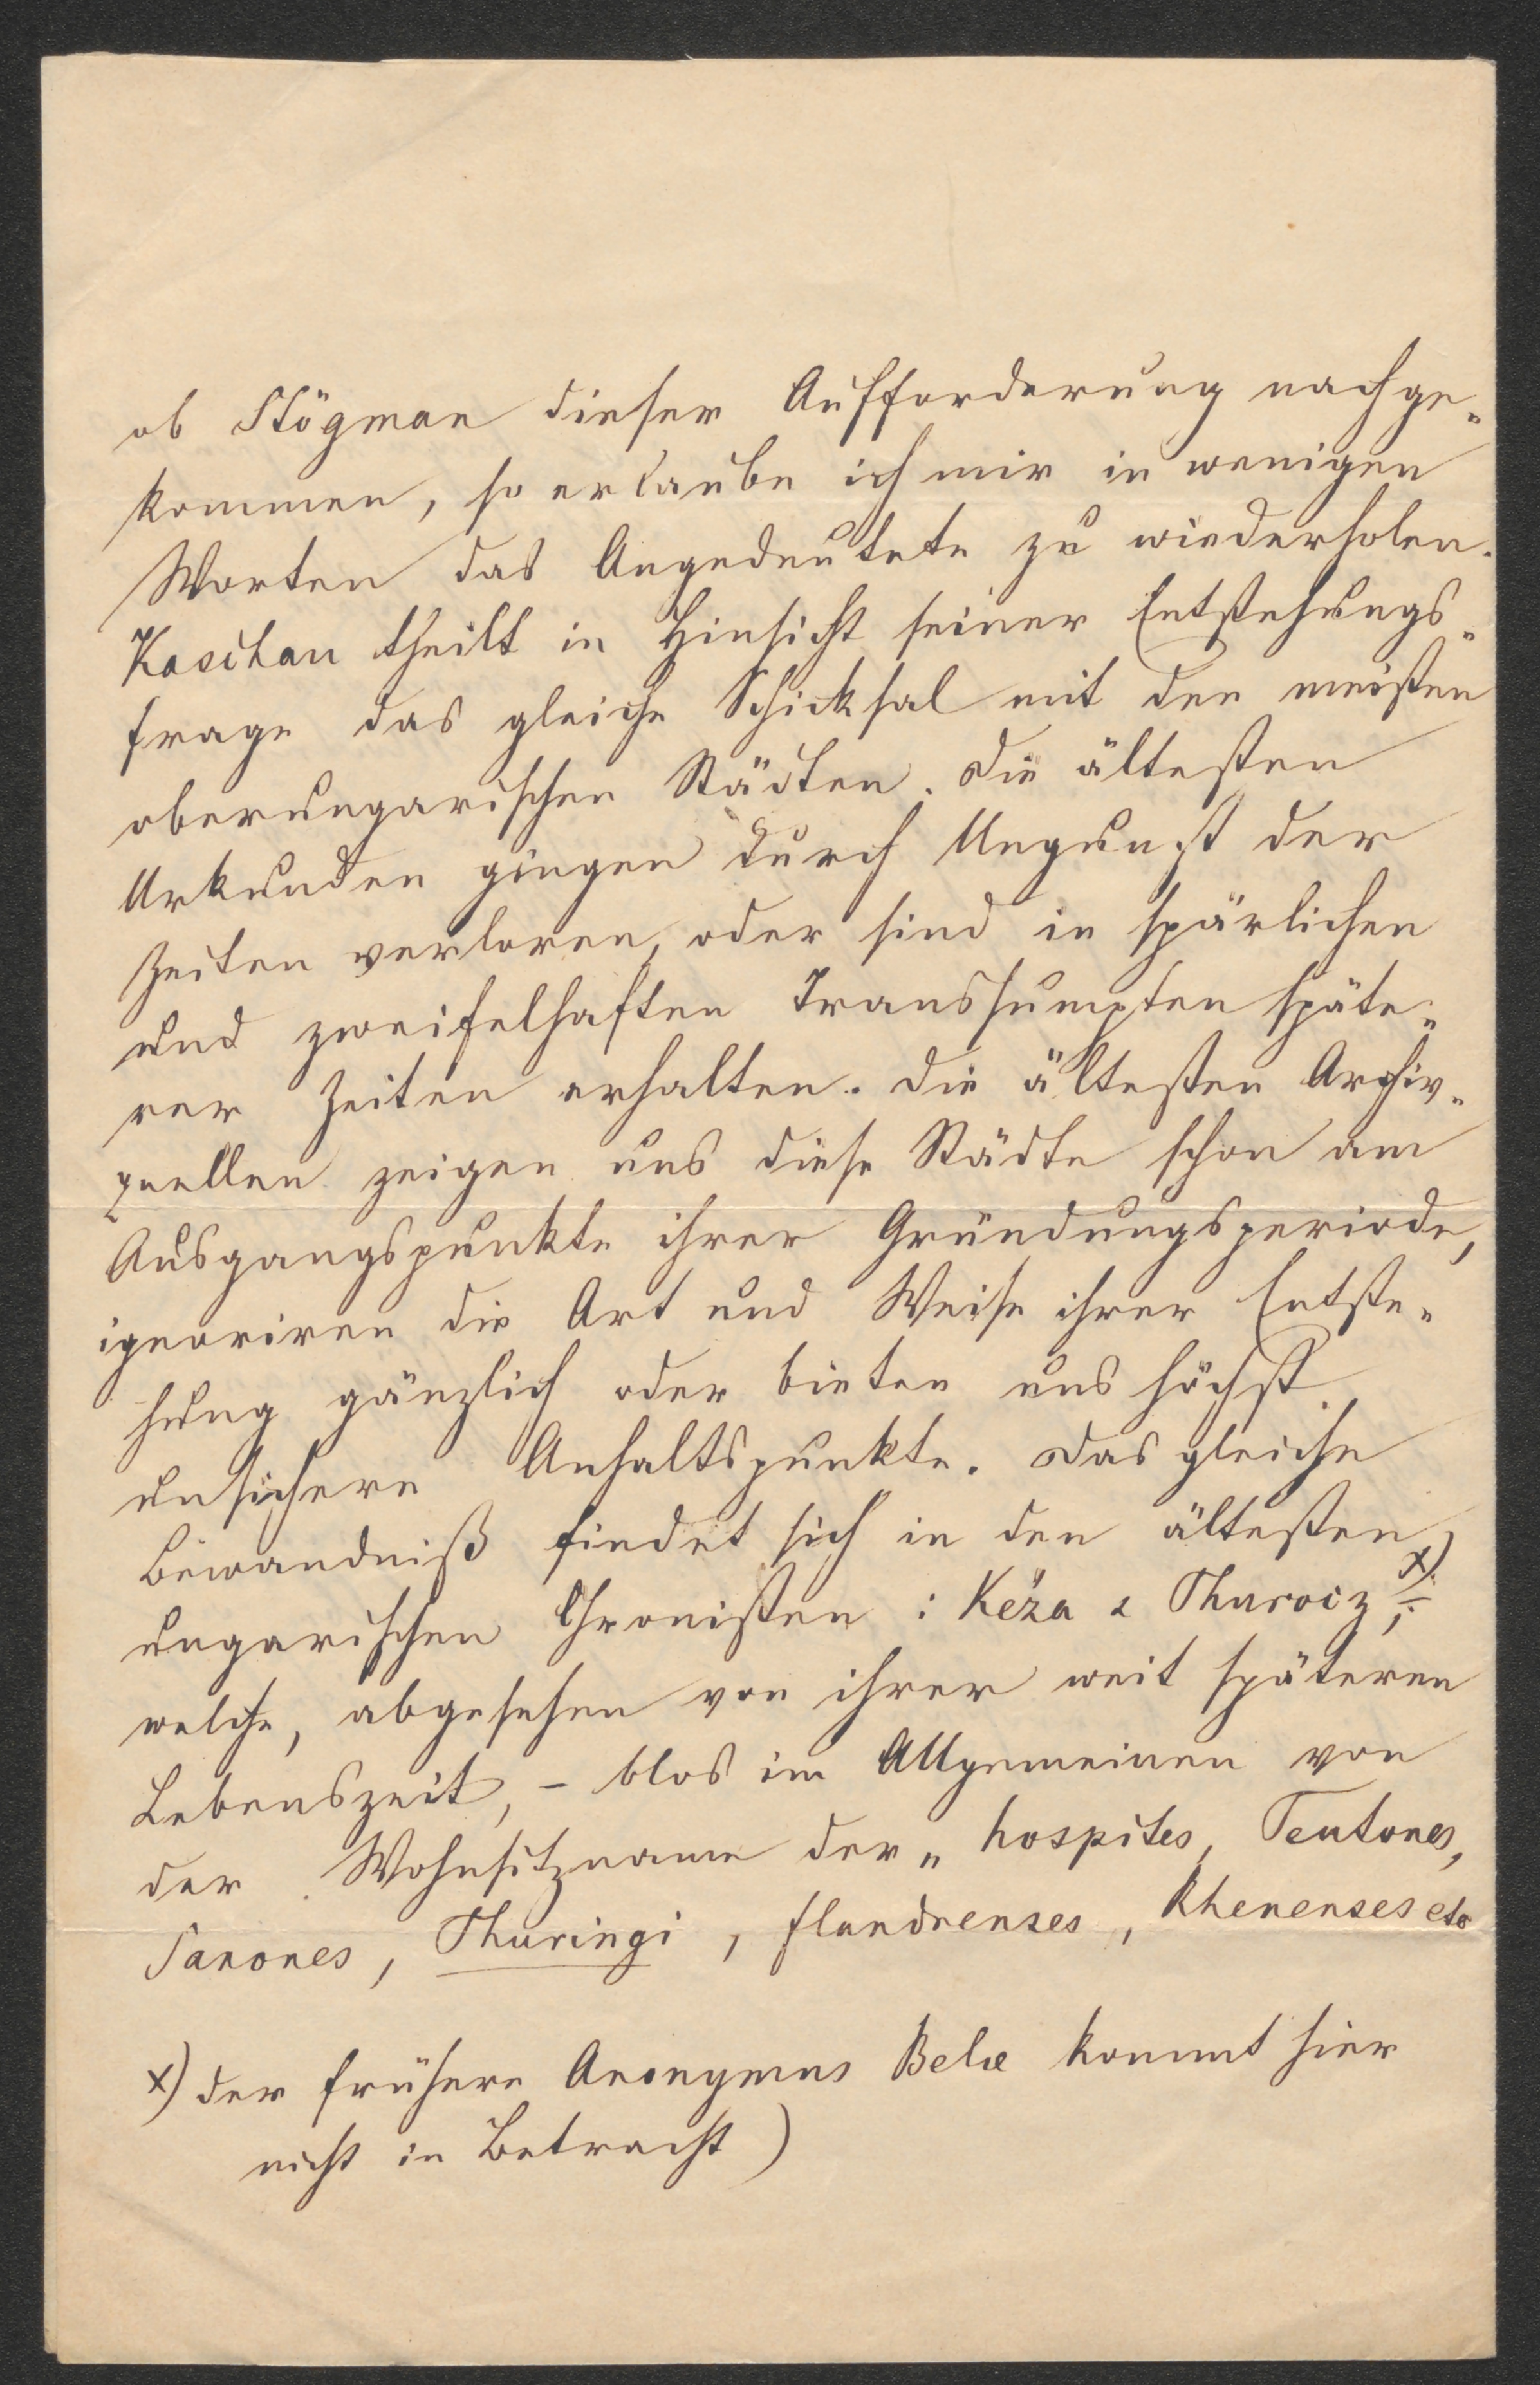 ob Stögman dieser Aufforderung nachge-
kommen, so erlaube ich mir in wenigen
Worten das Angedeutete zu wiederholen.
Kaschau theilt in Hinsicht seiner Entstehungs-
frage das gleiche Schicksal mit den meisten
oberungarischen Städten. Die ältesten
Urkunden gingen durch Ungunst der
Zeiten verloren, oder sind in spärlichen
und zweifelhaften Transsumpten späte-
rer Zeiten erhalten. Die ältesten Archiv-
quellen zeigen uns diese Städte schon am
Ausgangspunkte ihrer Gründungsperiode,
ignoriren die Art und Weise ihrer Entste-
hung gänzlich oder bieten uns höchst
unsichere Anhaltspunkte. Das gleiche
Bewandniß findet sich in den ältesten
ungarischen Chronisten: Kéza & Thurocz x),
welche, abgesehen von ihrer weit späteren
Lebenszeit, – blos im Allgemeinen von
der Wohnsitzname der „hospites, Teutones,
Saxones, Thuringi, flandrenses, Rhenenses etc
x) der frühere Anonymus Belæ kommt hier
nicht in Betracht)